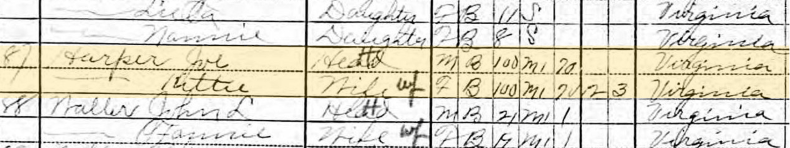 Daughter F B 11 S Virginia
Nannie Daughter F B 8 S Virginia
87 Harper Joe Head M B 100 M1 70 Virginia
Kittie Wife wf F B 100 M1 70 12 3 Virginia
88 Waller John L Head M B 21 M1 1 Virginia
Fannie Wife wf F B 17 M1 1 Virginia